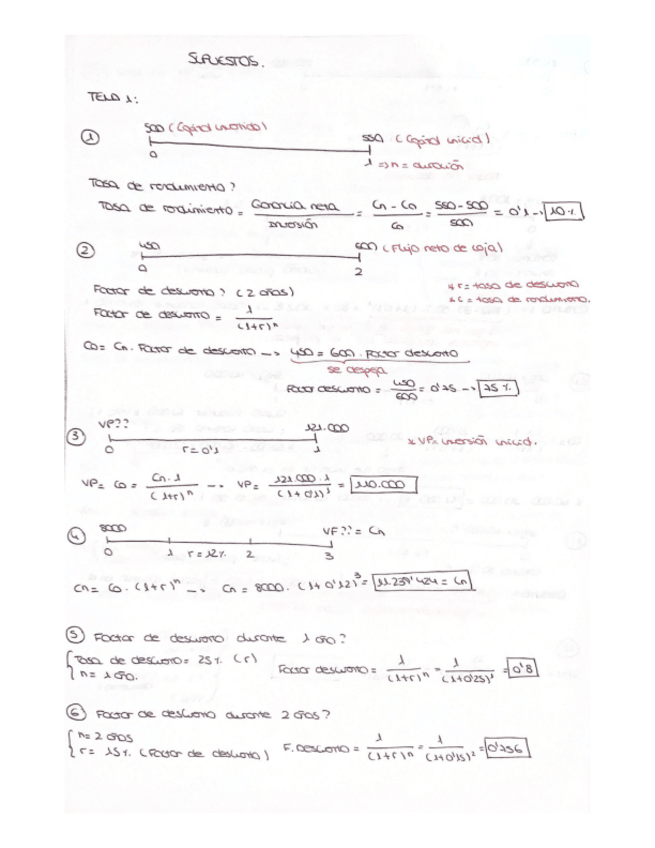 SUPUESTOS.
TEMA 1:
① 500 (Capital invertido) 550 (Capital inicial)
0 1 => n = duración
Tasa de rendimiento?
Tasa de rendimiento = Ganancia neta / Inversión = Cn - Co / Co = 550 - 500 / 500 = 0'1 → 10%
② 450 600 (Flujo neto de caja)
0 2
Factor de descuento? (2 años)
* r = tasa de descuento
* i = tasa de rendimiento.
Factor de descuento = 1 / (1+r)ⁿ
Co = Cn · Factor de descuento --> 450 = 600 · Factor descuento
se despeja
Factor descuento = 450 / 600 = 0'75 → 75%
③ VP?? 121.000
0 r = 0'1 1
* VP = inversión inicial.
VP = Co = Cn · 1 / (1+r)ⁿ --> VP = 121.000 · 1 / (1+0'1)¹ = 110.000
④ 8000 VF?? = Cn
0 1 r = 12% 2 3
Cn = Co · (1+r)ⁿ --> Cn = 8000 · (1+0'12)³ = 11.239'424 = Cn
⑤ Factor de descuento durante 1 año?
Tasa de descuento = 25% (r)
n = 1 año.
Factor descuento = 1 / (1+r)ⁿ = 1 / (1+0'25)¹ = 0'8
⑥ Factor de descuento durante 2 años?
n = 2 años
r = 15% (Factor de descuento)
F. Descuento = 1 / (1+r)ⁿ = 1 / (1+0'15)² = 0'756